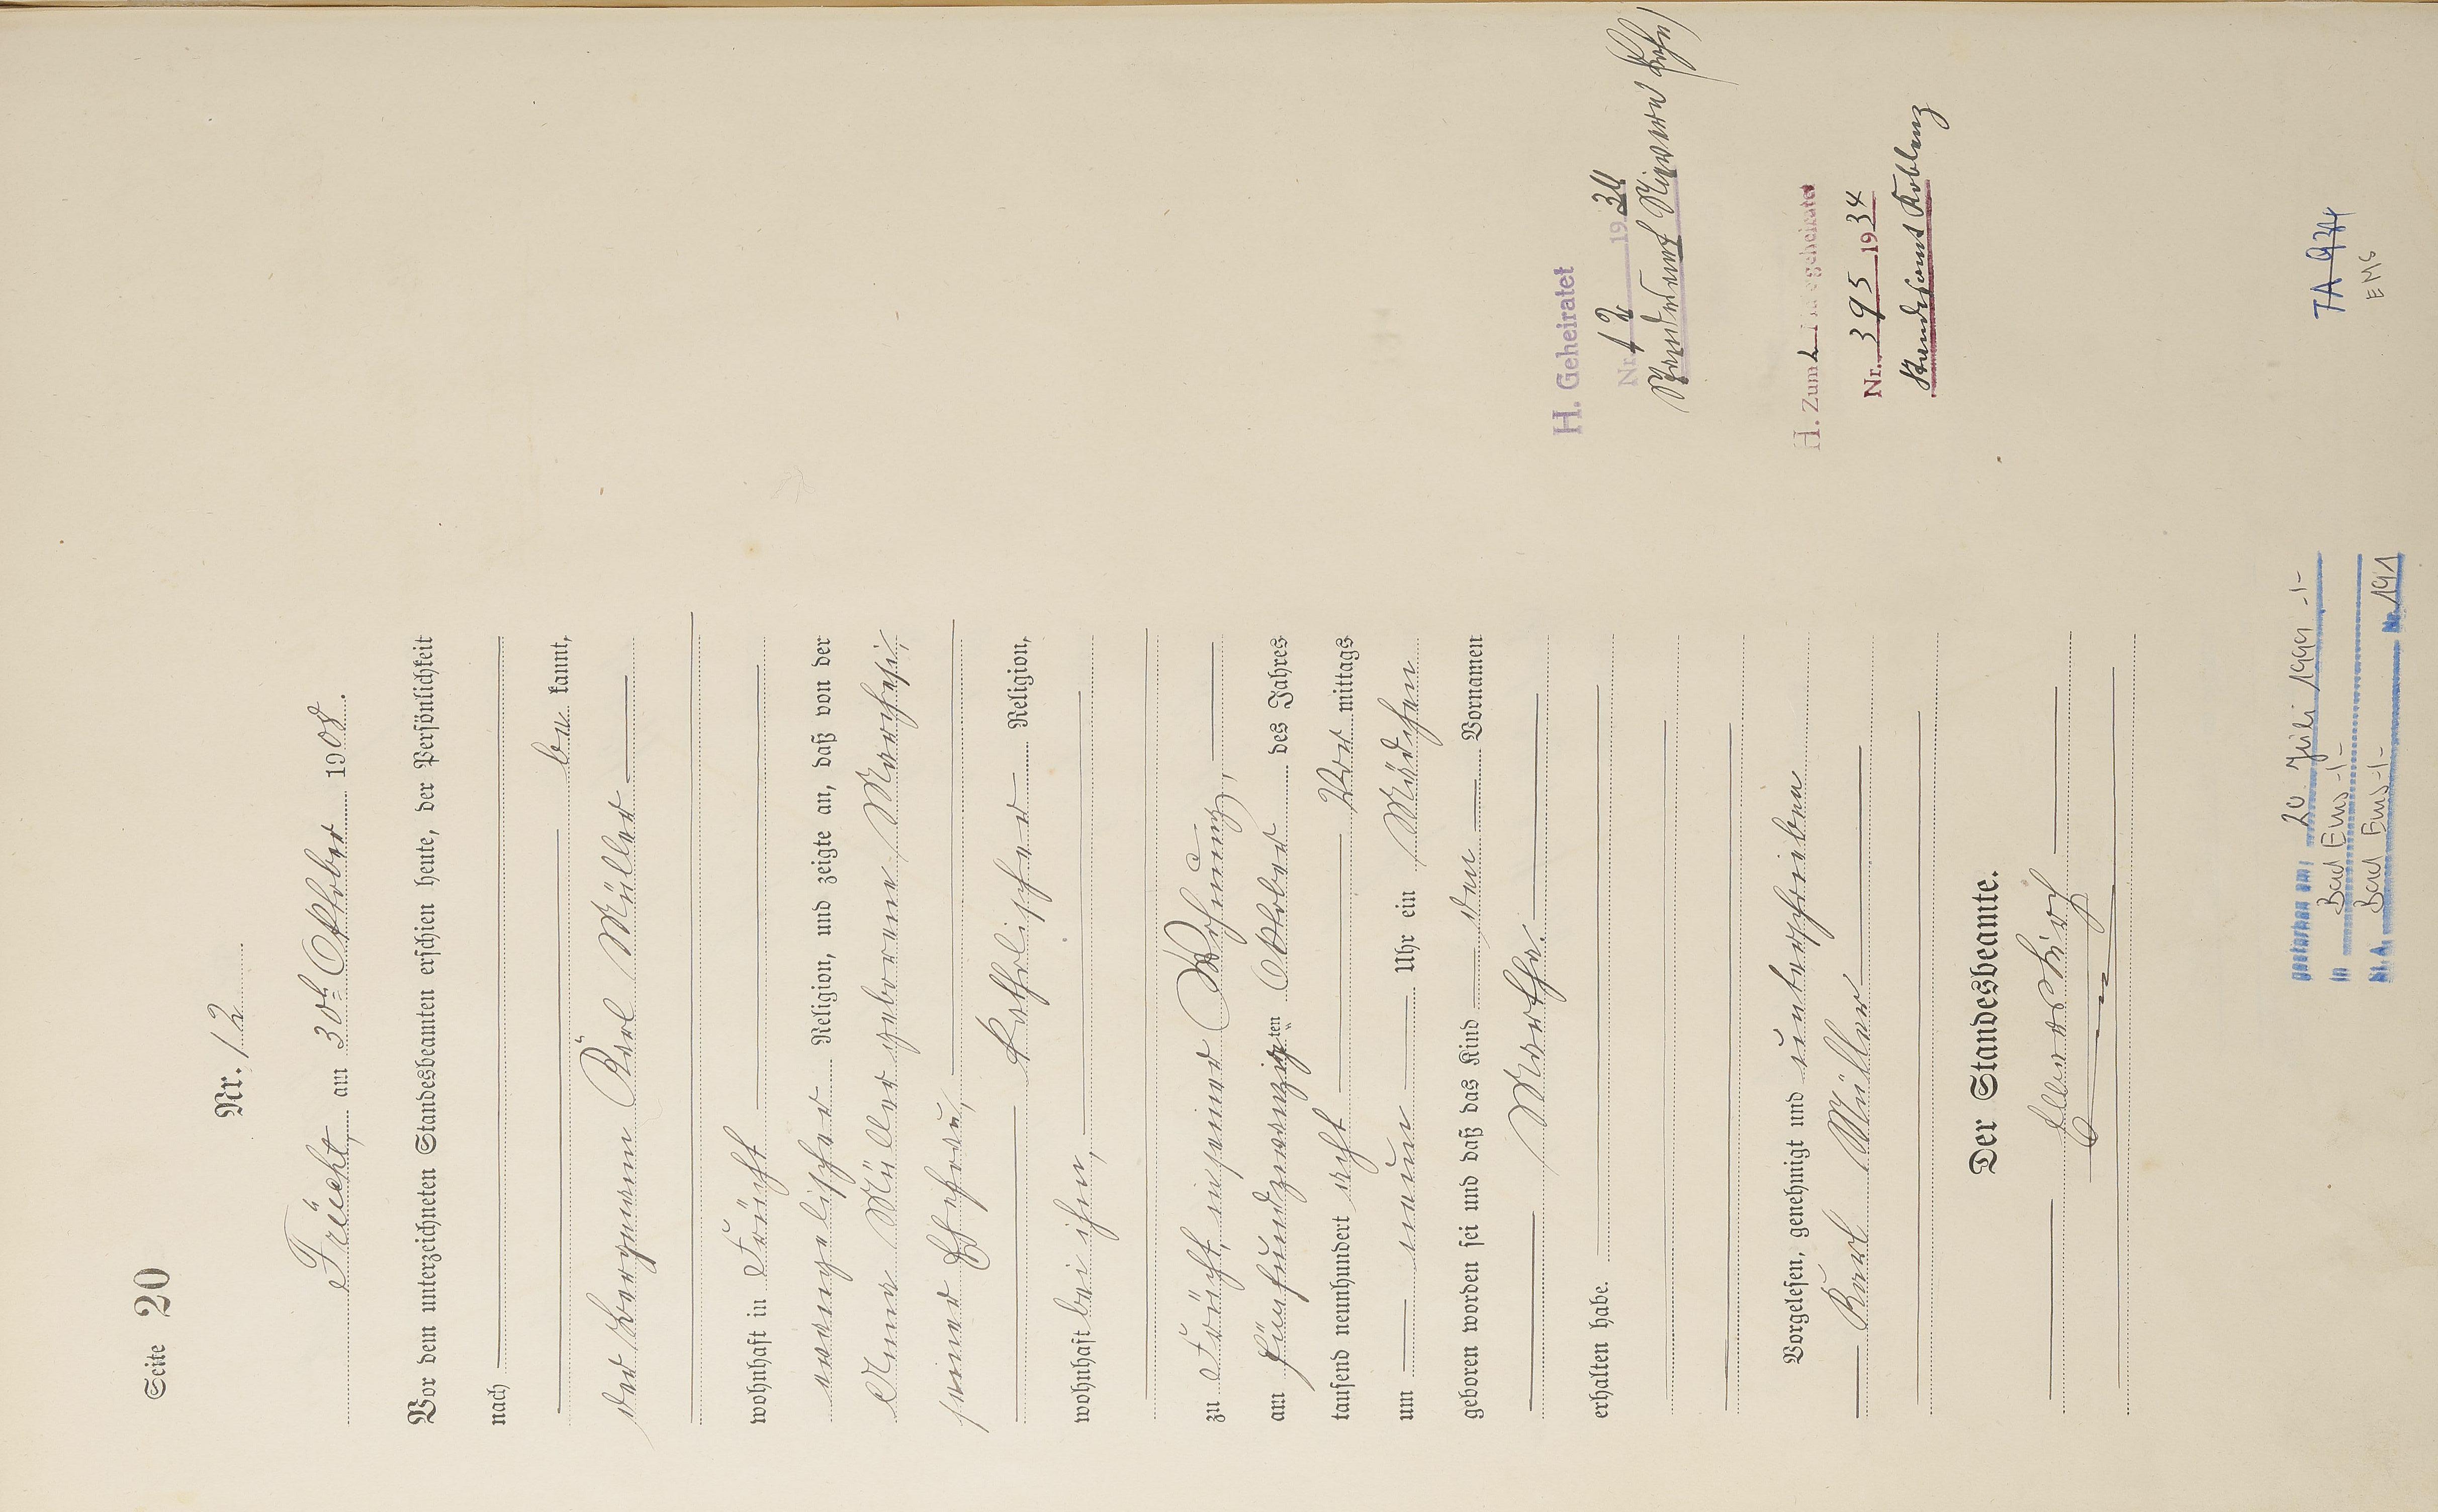 Seite 20
Nr. 12
Frücht, am 30t Oktober 1908.
Vor dem unterzeichneten Standesbeamten erschien heute, der Persönlichkeit
nach
be kannt,
der Bergmann Karl Müller
wohnhaft in Frücht
evangelischer Religion, und zeigte an, daß von der
Anna Müller geborene
seiner Ehefrau,
katholischer Religion,
wohnhaft bei ihm,
zu Frücht, in seiner Wohnung,
am fünfundzwanzigsten Oktober des Jahres
tausend neunhundert acht Vor mittags
um neun Uhr ein Mädchen
geboren worden sei und daß das Kind den Vornamen
Martha
erhalten habe.
Vorgelesen, genehmigt und unterschrieben
Karl Müller
Der Standesbeamte.
H. Geheiratet
Nr. 12 1930
Standesamt
H. Zum 2. geheiratet
Nr. 395 1934
Standesamt Koblenz
gestorben am: 20. Juli 1999 -/-
in Bad Ems -/-
St.A. Bad Ems -/- Nr. 191
TA 9.74
EMS